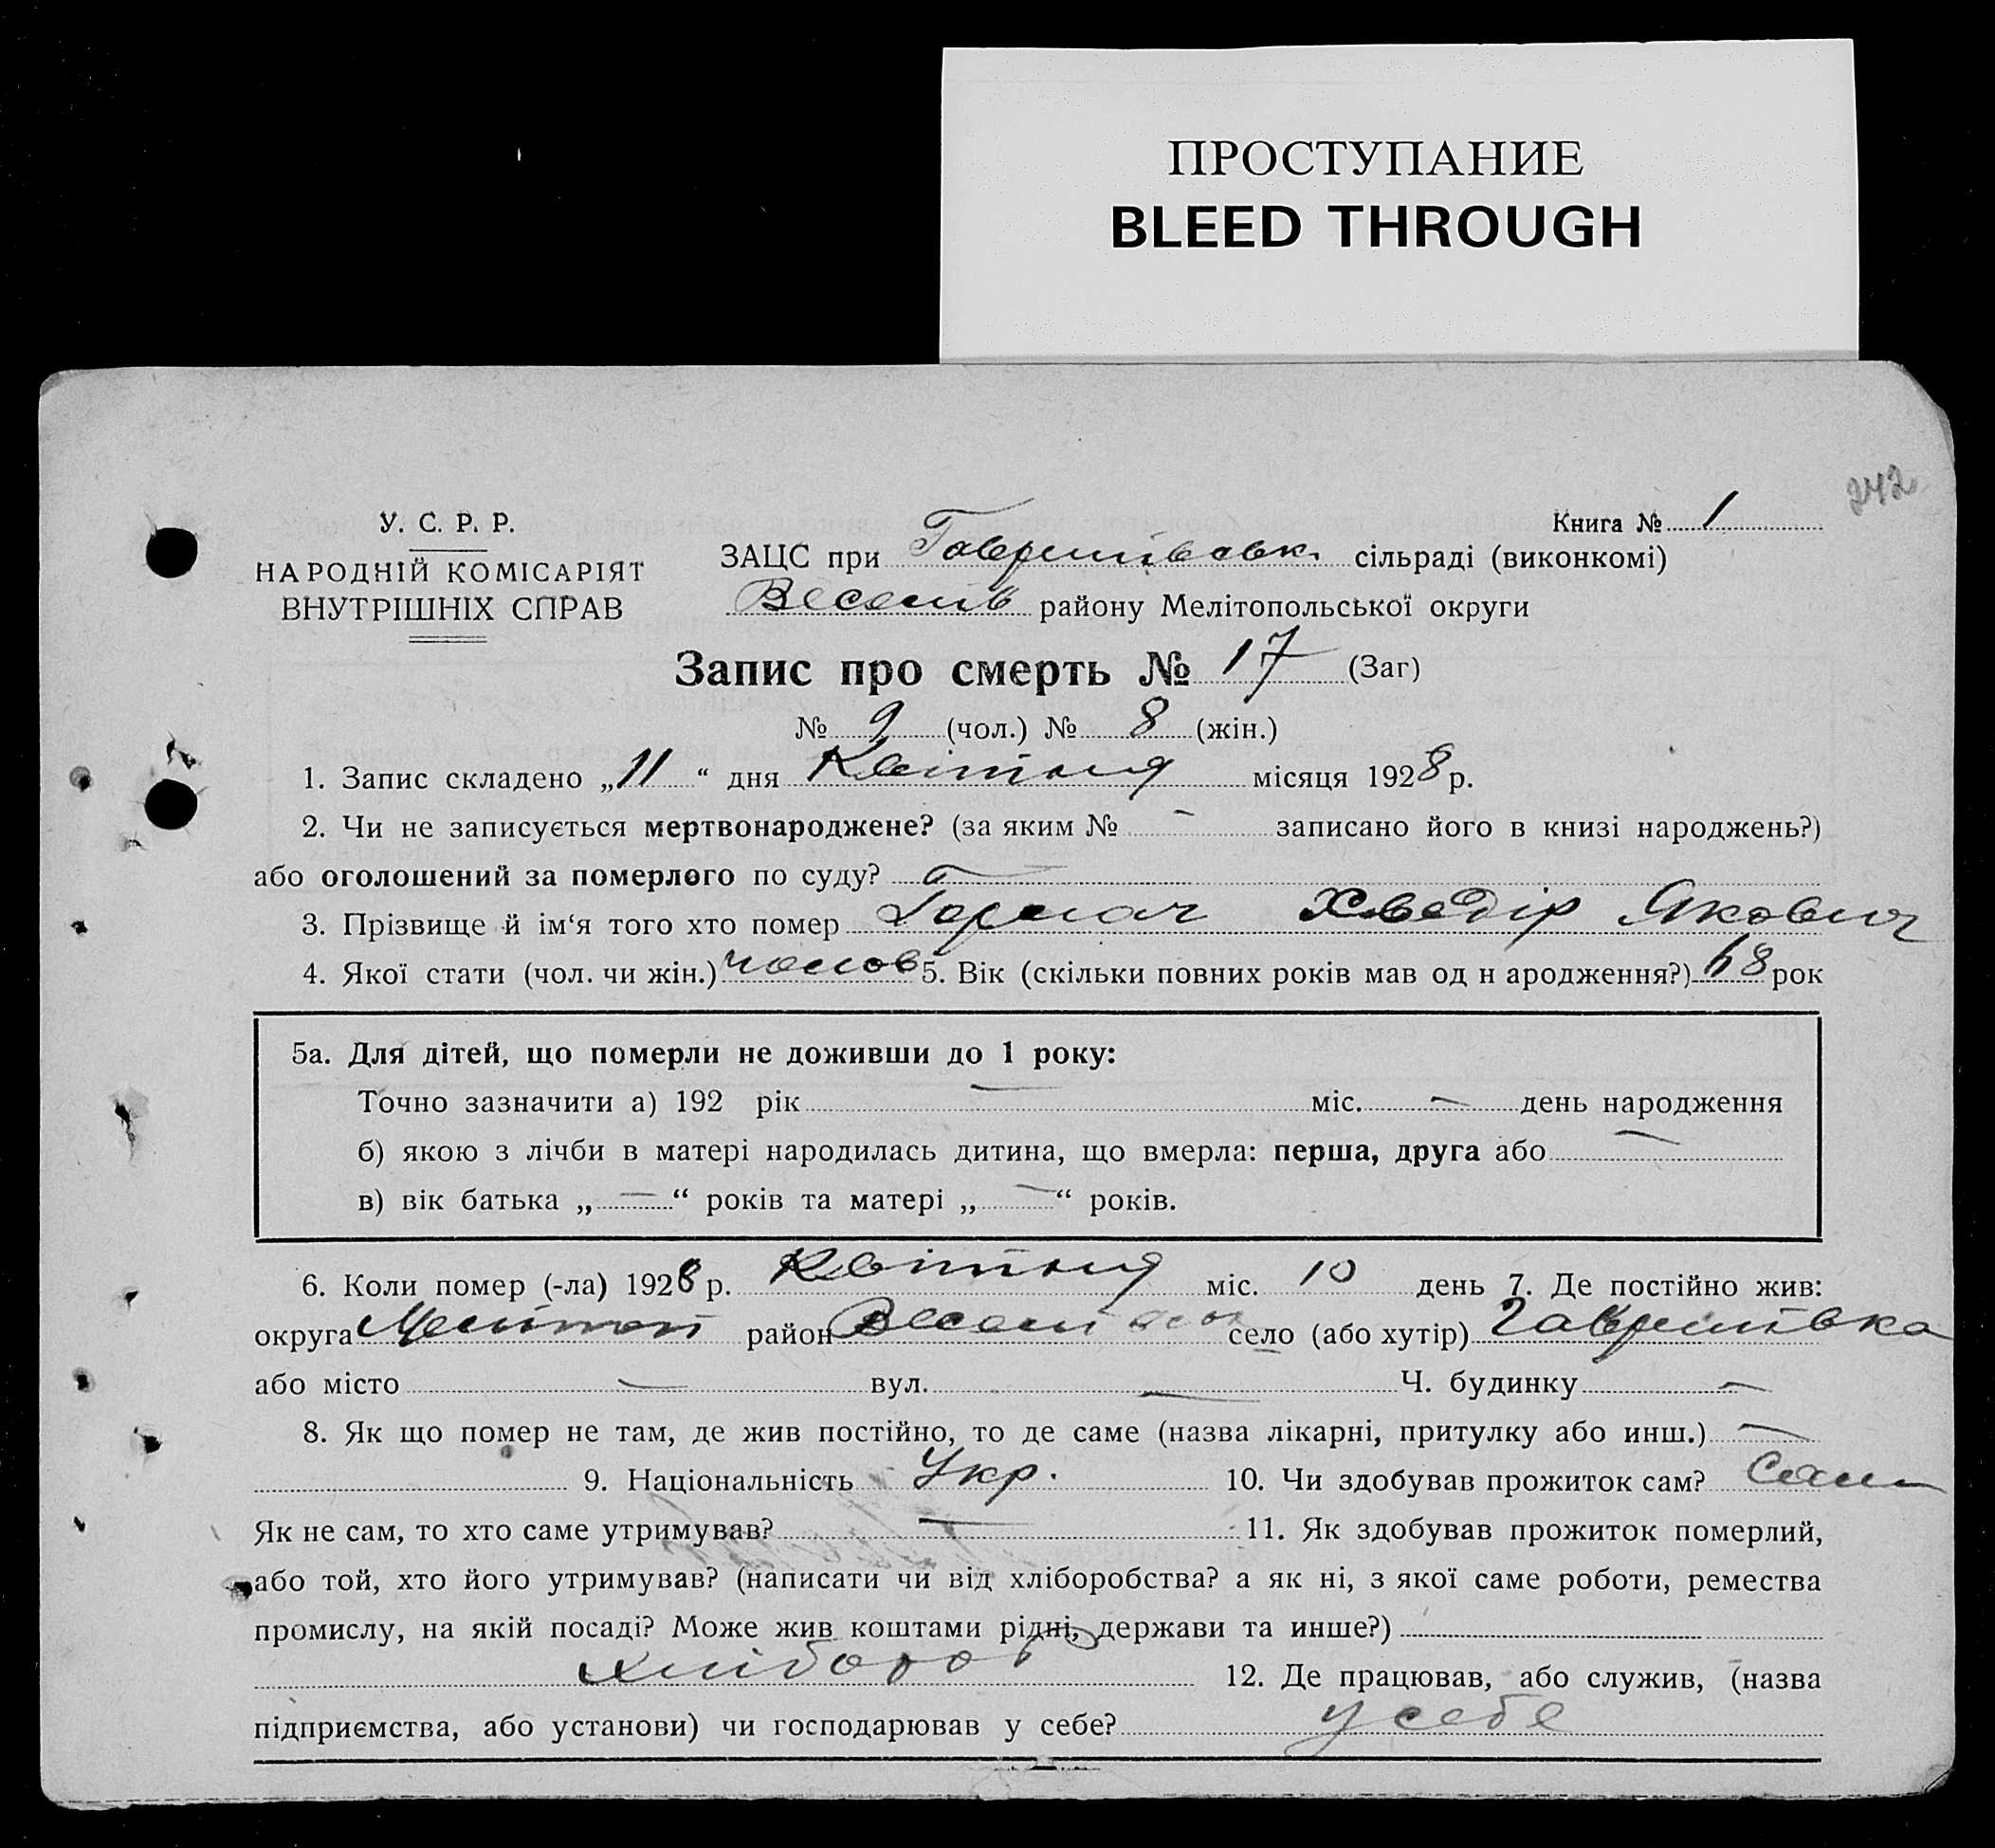 ПРОСТУПАНИЕ
BLEED THROUGH
242
У. С. Р. Р.
Книга № 1
НАРОДНІЙ КОМІСАРІЯТ
ВНУТРІШНІХ СПРАВ
ЗАЦС при Гаврилівськ. сільраді (виконкомі)
Веселів району Мелітопольської округи
Запис про смерть № 17 (Заг)
№ 9 (чол.) № 8 (жін.)
1. Запис складено „11“ дня Квітня місяця 1928 р.
2. Чи не записується мертвонароджене? (за яким № — записано його в книзі народжень?)
або оголошений за померлого по суду? —
3. Прізвище й ім‘я того хто помер Хведір Якович
4. Якої стати (чол. чи жін.) чолов 5. Вік (скільки повних років мав од н ародження?) 68 рок
5а. Для дітей, що померли не доживши до 1 року:
Точно зазначити а) 192 рік — міс. — день народження
б) якою з лічби в матері народилась дитина, що вмерла: перша, друга або —
в) вік батька „—“ років та матері „—“ років.
6. Коли помер (-ла) 1928 р. Квітня міс. 10 день 7. Де постійно жив:
округа Меліттоп район Веселів село (або хутір) Гаврилівка
або місто — вул. — Ч. будинку —
8. Як що помер не там, де жив постійно, то де саме (назва лікарні, притулку або инш.) —
9. Національність Укр. 10. Чи здобував прожиток сам? Сам
Як не сам, то хто саме утримував? — 11. Як здобував прожиток померлий,
або той, хто його утримував? (написати чи від хліборобства? а як ні, з якої саме роботи, ремества
промислу, на якій посаді? Може жив коштами рідні, держави та инше?)
хлібороб 12. Де працював, або служив, (назва
підприємства, або установи) чи господарював у себе? у себе